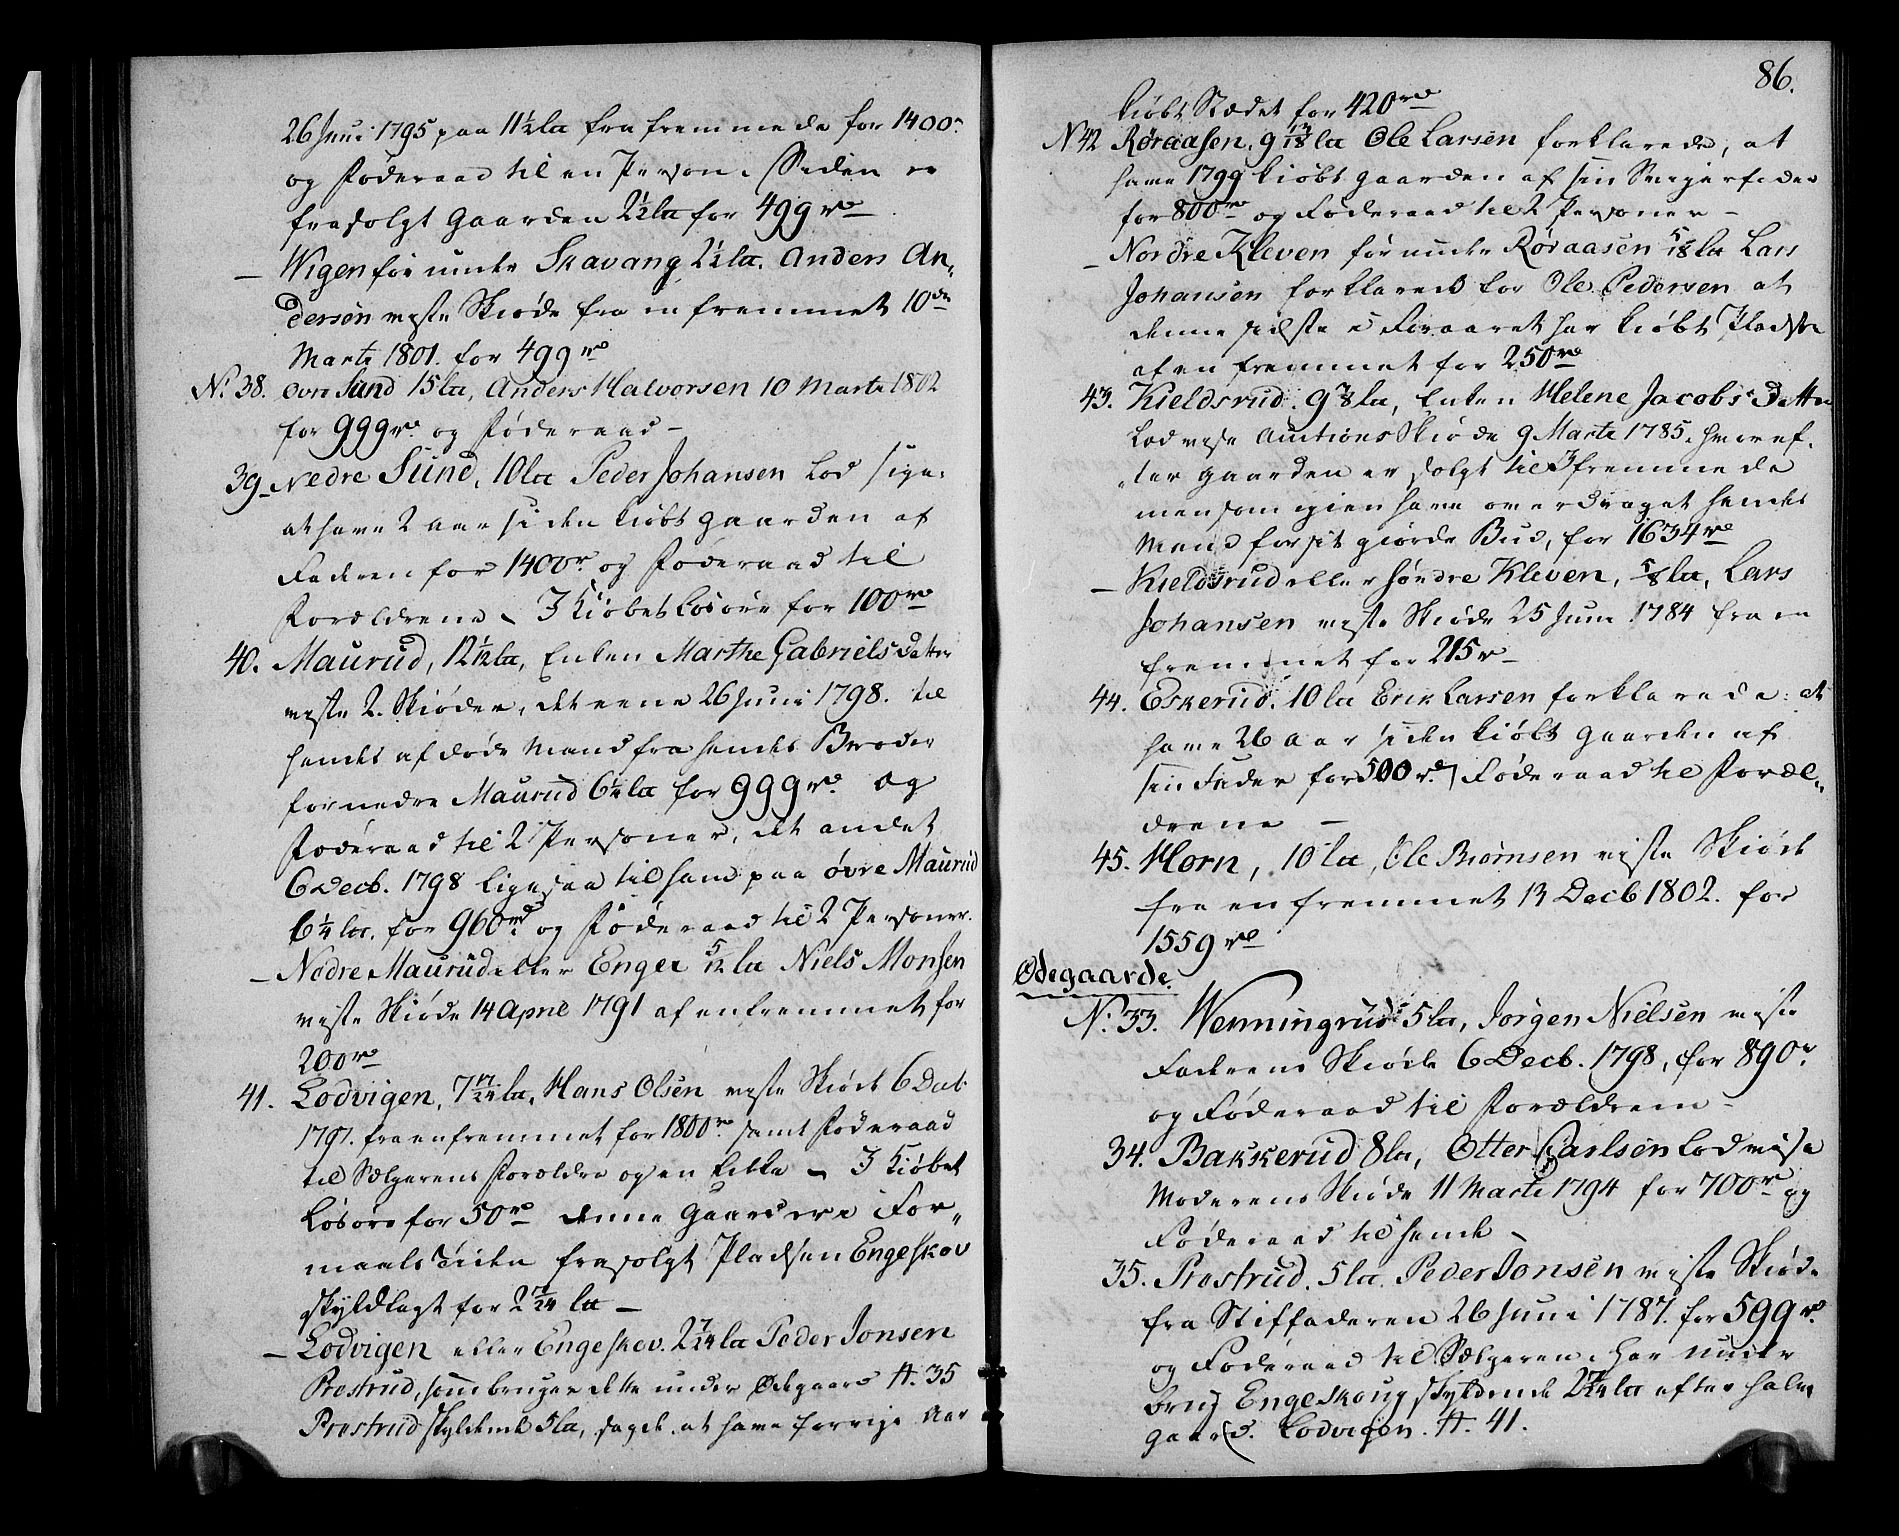 26 Juni 1795 paa 11½ la fra fremmede for 1400r
og Föderaad til en Person. Siden er
frasolgt Gaarden 2½ la for 499 rd
— Wigen før under Skavang 2½ la. Anders An„
dersen viste Skiøde fra en fremmet 10de
Marti 1801. for 499 rd
N. 38. øvre Sund 15 la, Anders Halvorsen 10 Marti 1802
for 999 rd. og Föderaad —
39 – Nedre Sund, 10 la Peder Johansen lod sige:
at have 2 aar siden kiøbt Gaarden af
Faderen for 1400r. og Föderaad til
Forældrene – I Kiøbet Løsøre for 100 rd
40. Maurud, 12 ½ la, Enken Marthe Gabriels datter
viste 2. Skiøder, det eene 26 Juni 1798. til
hendes afdøde Mand fra hendes Broder
for nedre Maurud 6¼ la for 999 rd. og
Föderaad til 2 Personer, det andet
6 Decb. 1798 ligesaa til ham paa øvre Maurud
6¼ la. for 960 rd. og Föderaad til 2 Personer.
— Nedre Maurud eller Enger 5/12 la Niels Monsen
viste Skiøde 14 April 1791 af en fremmet for
200 rd
41. Lodvigen, 7 17/24 la, Hans Olsen viste Skiøde 6 Decb.
1797. fra en fremmet for 1800 rd. samt Föderaad
til Sælgerens Forældre og en Enke – I Kiøbet
Løsøre for 50 rd denne Gaard er i For„
maals Tiden frasolgt Pladsen Engeskov
skyldlagt for 2 7/24 la —
— Lodvigen eller Engeskov. 2 7/24 la Peder Jonsen
Prestrud, som bruger dette under Ødegaard N. 35
Prestrud skyldende 5 la, sagde at have forrige Aar
86.
kiøbt Stædet for 420 rd
N 42 Røraasen, 9 13/18 la Ole Larsen forklarede, at
have 1799 kiøbt Gaarden af sin Svigerfader
for 800 rd og Föderaad til 2 Personer —
— Nordre Kleven før under Røraasen 5/18 la Lars
Johansen forklarede for Ole Pedersen at
denne sidste i Foraaret har kiøbt Pladsen
af en fremmet for 250 rd
43. Kieldsrud. 9 3/8 la, Enken Helene Jacobs Datter
lod vise Auctions Skiøde 9 Marti 1785. hvoref„
„ter Gaarden er solgt til 3 fremmede
men som igien have overdraget hendes
Mand for sit giørde Bud, for 1634 rd
— Kieldsrud eller søndre Kleven, 5/8 la, Lars
Johansen viste Skiøde 25 Juni 1784 fra en
fremmet for 215 r —
44. Eskerud. 10 la Erik Larsen forklarede: at
have 26 Aar siden kiøbt Gaarden af
sin Fader for 500 rd. Föderaad til Foræl„
drene —
45. Horn, 10 la, Ole Biørnsen viste Skiøde
fra en fremmet 13 Decb 1802. for
1559 rd
Ødegaarde.
N. 33. Wenningrud 5 la, Jørgen Nielsen viste
Faderens Skiøde 6 Decb. 1798, for 890 r
og Föderaad til Forældrene –
34. Bakkerud 8 la, Otter Carlsen lod vise
Moderens Skiøde 11 Marti 1794 for 700 rd og
Föderaad til hende –
35. Prestrud. 5 la. Peder Jonsen viste Skiøde
fra Stiffaderen 26 Juni 1787. for 599 rd
og Föderaad til Sælgeren. har under
brug Engeskoug skyldende 2 7/24 la efter halv
gaard. Lodvigen. N. 41.